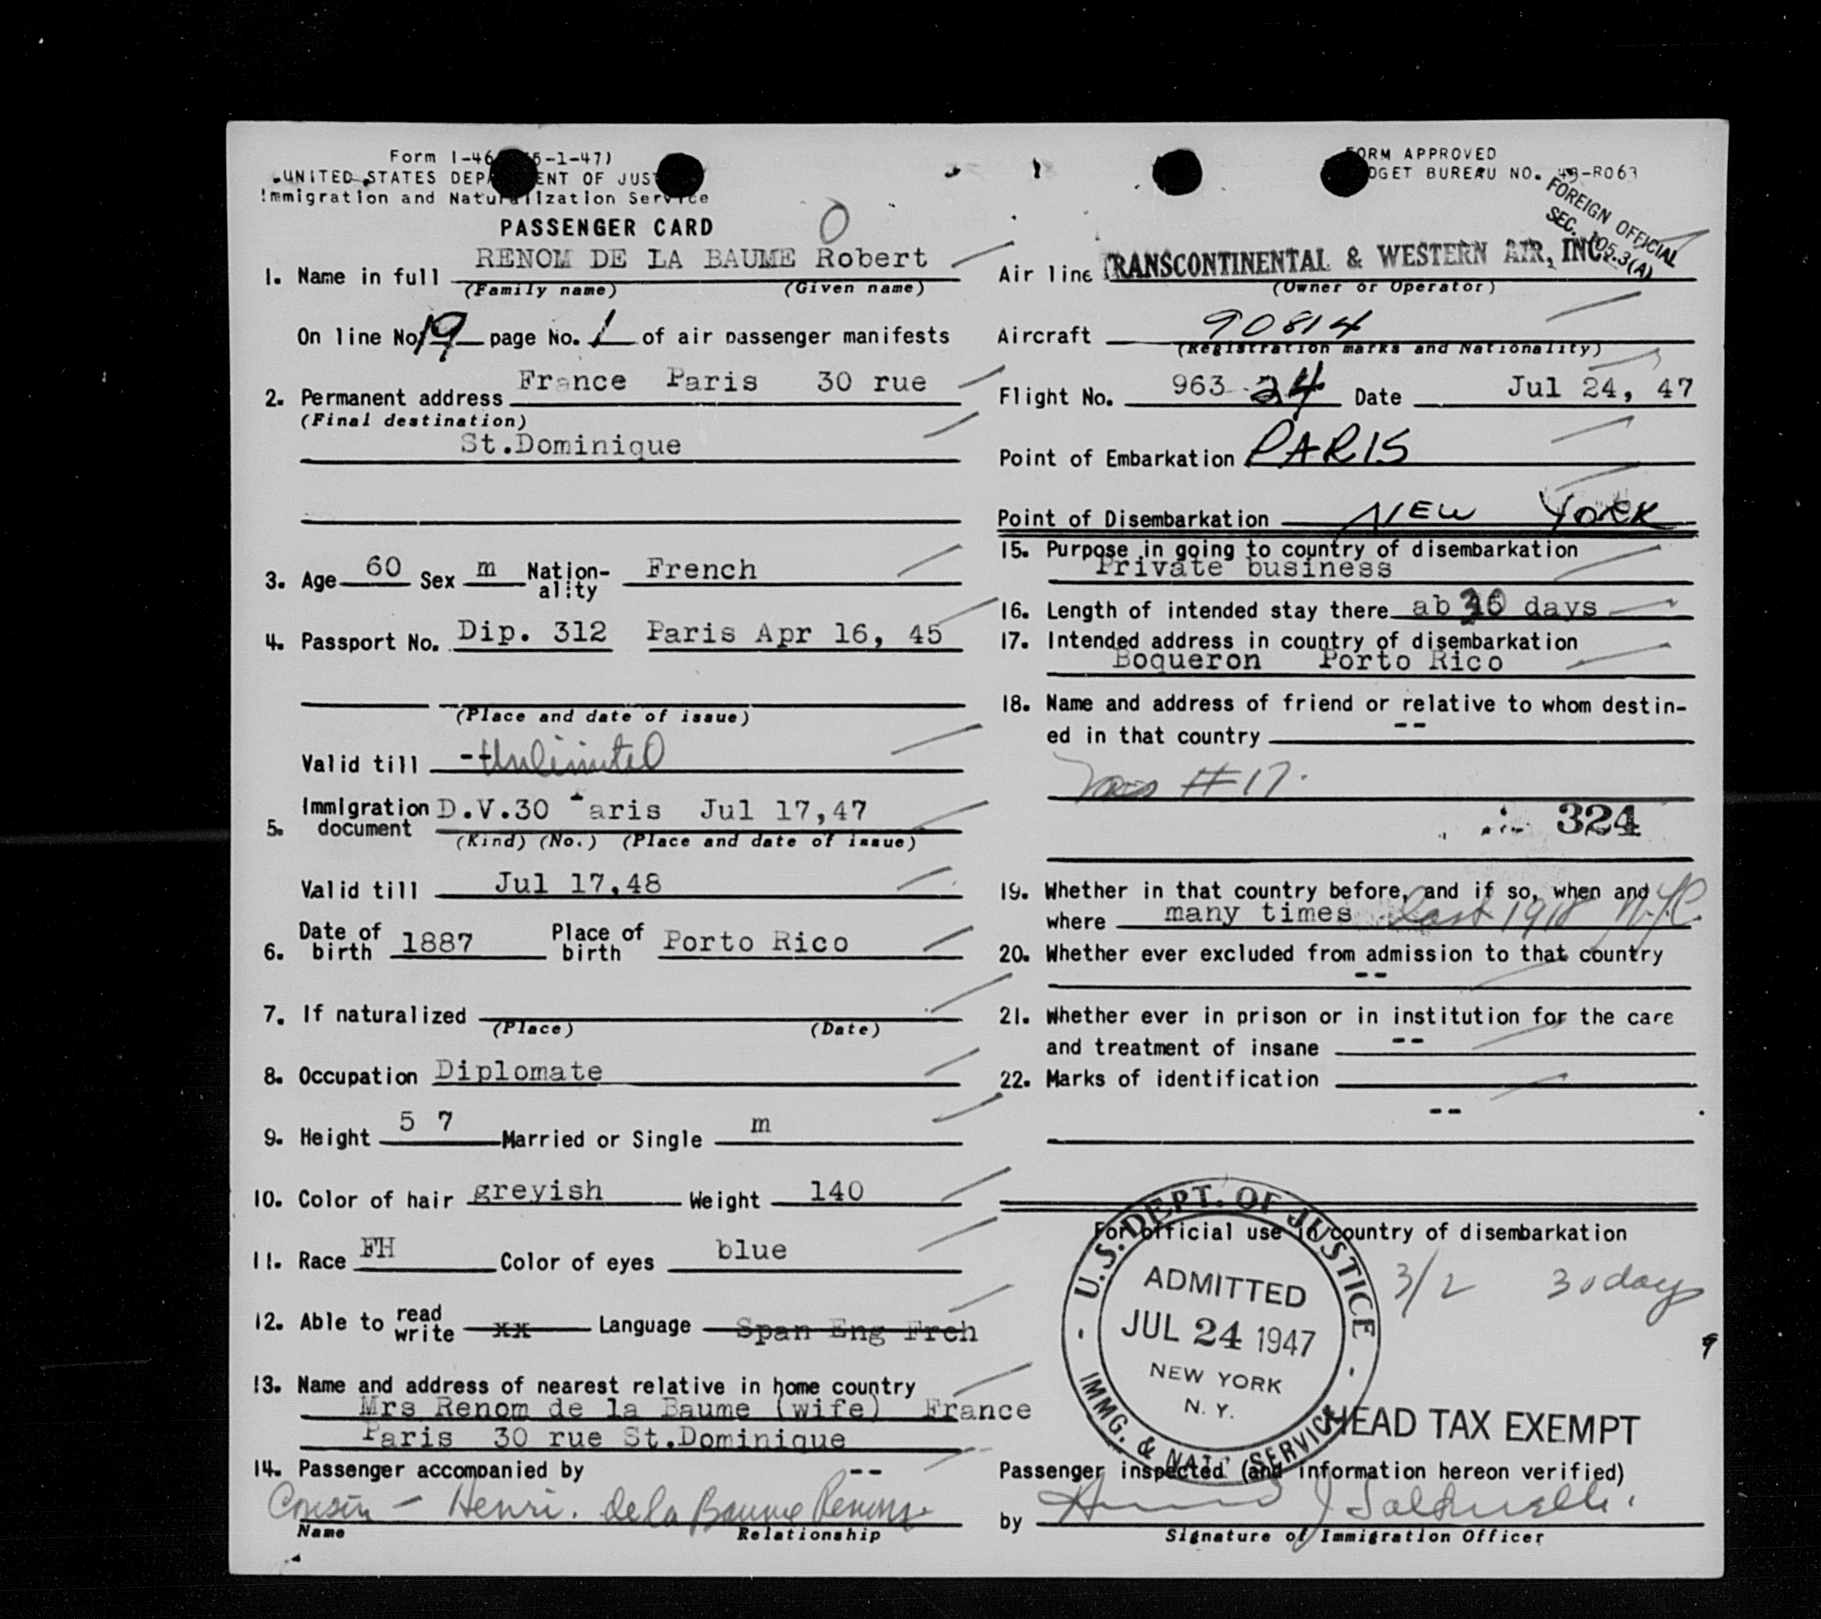 Form I-46 (5-1-47)
UNITED STATES DEPARTMENT OF JUSTICE
Immigration and Naturalization Service
PASSENGER CARD
O
1. Name in full RENOM DE LA BAUME Robert
(Family name) (Given name)
On line No. 19 page No. 1 of air passenger manifests
2. Permanent address France Paris 30 rue
(Final destination)
St.Dominique
3. Age 60 Sex m Nation-ality French
4. Passport No. Dip. 312 Paris Apr 16, 45
(Place and date of issue)
Valid till - Unlimited
5. Immigration document D.V.30 Paris Jul 17,47
(Kind) (No.) (Place and date of issue)
Valid till Jul 17,48
6. Date of birth 1887 Place of birth Porto Rico
7. If naturalized
(Place) (Date)
8. Occupation Diplomate
9. Height 5 7 Married or Single m
10. Color of hair greyish Weight 140
11. Race FH Color of eyes blue
12. Able to read write xx Language Span Eng Frch
13. Name and address of nearest relative in home country
Mrs Renom de la Baume (wife) France
Paris 30 rue St.Dominique
14. Passenger accompanied by --
Cousin - Henri. de la Baume Renom
Name Relationship
FORM APPROVED
BUDGET BUREAU NO. 43-R063
FOREIGN OFFICIAL
SEC. 105.3(A)
Air line TRANSCONTINENTAL & WESTERN AIR, INC.
(Owner or Operator)
Aircraft 90814
(Registration marks and Nationality)
Flight No. 963 24 Date Jul 24, 47
Point of Embarkation PARIS
Point of Disembarkation NEW YORK
15. Purpose in going to country of disembarkation
Private business
16. Length of intended stay there ab 30 days
17. Intended address in country of disembarkation
Boqueron Porto Rico
18. Name and address of friend or relative to whom destin-
ed in that country --
#17.
324
19. Whether in that country before, and if so, when and
where many times last 1918 N.Y.C.
20. Whether ever excluded from admission to that country
--
21. Whether ever in prison or in institution for the care
and treatment of insane --
22. Marks of identification
--
For official use in country of disembarkation
U.S. DEPT. OF JUSTICE
ADMITTED
JUL 24 1947
NEW YORK
N. Y.
IMMG. & NAT. SERVICE
3/2 30 days
9
HEAD TAX EXEMPT
Passenger inspected (and information hereon verified)
by
Signature of Immigration Officer